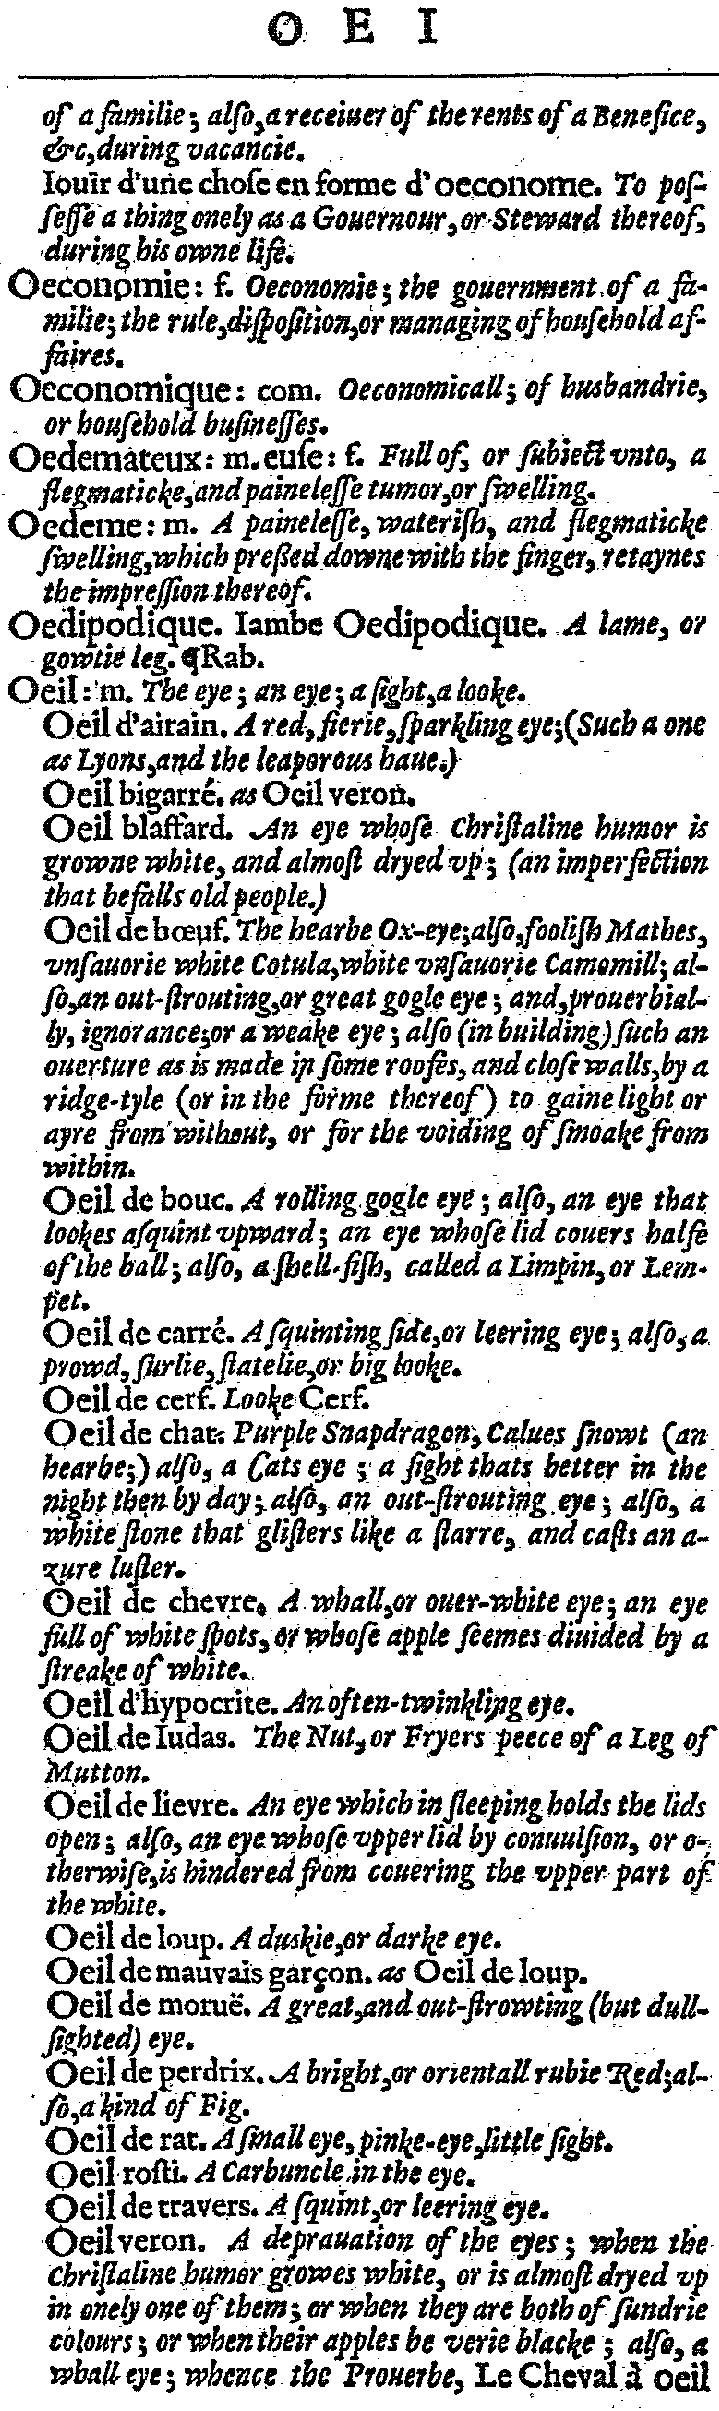 O E I
of a familie; alſo, a receiuer of the rents of a Benefice,
&c, during vacancie.
Iouïr d'une choſe en forme d'oeconome. To poſ-
ſeſſe a thing onely as a Gouernour, or Steward thereof,
during his owne life.
Oeconomie: f. Oeconomie; the gouernment of a fa-
milie; the rule, diſpoſition, or managing of houſehold af-
faires.
Oeconomique: com. Oeconomicall; of husbandrie,
or houſehold buſineſſes.
Oedemateux: m. euſe: f. Full of, or ſubiect vnto, a
flegmaticke, and paineleſſe tumor, or ſwelling.
Oedeme: m. A paineleſſe, wateriſh, and flegmaticke
ſwelling, which preßed downe with the finger, retaynes
the impreſſion thereof.
Oedipodique. Iambe Oedipodique. A lame, or
gowtie leg. ¶Rab.
Oeil: m. The eye; an eye; a ſight, a looke.
Oeil d'airain. A red, fierie, ſparkling eye; (Such a one
as Lyons, and the leaporous haue.)
Oeil bigarré. as Oeil veron.
Oeil blaffard. An eye whoſe Chriſtaline humor is
growne white, and almoſt dryed vp; (an imperfection
that befalls old people.)
Oeil de bœuf. The hearbe Ox-eye; alſo, fooliſh Mathes,
vnſauorie white Cotula, white vnſauorie Camomill; al-
ſo, an out-ſtrouting, or great gogle eye; and, prouerbial-
ly, ignorance; or a weake eye; alſo (in building) ſuch an
ouerture as is made in ſome roofes, and cloſe walls, by a
ridge-tyle (or in the forme thereof) to gaine light or
ayre from without, or for the voiding of ſmoake from
within.
Oeil de bouc. A rolling gogle eye; alſo, an eye that
lookes aſquint vpward; an eye whoſe lid couers halfe
of the ball; alſo, a ſhell-fiſh, called a Limpin, or Lem-
pet.
Oeil de carré. A ſquinting ſide, or leering eye; alſo, a
prowd, ſurlie, ſtatelie, or big looke.
Oeil de cerf. Looke Cerf.
Oeil de chat. Purple Snapdragon, Calues ſnowt (an
hearbe;) alſo, a Cats eye; a ſight thats better in the
night then by day; alſo, an out-ſtrouting eye; alſo, a
white ſtone that gliſters like a ſtarre, and caſts an a-
zure luſter.
Oeil de chevre. A whall, or ouer-white eye; an eye
full of white ſpots, or whoſe apple ſeemes diuided by a
ſtreake of white.
Oeil d'hypocrite. An often-twinkling eye.
Oeil de Iudas. The Nut, or Fryers peece of a Leg of
Mutton.
Oeil de lievre. An eye which in ſleeping holds the lids
open; alſo, an eye whoſe vpper lid by conuulſion, or o-
therwiſe, is hindered from couering the vpper part of
the white.
Oeil de loup. A duskie, or darke eye.
Oeil de mauvais garçon. as Oeil de loup.
Oeil de moruë. A great, and out-ſtrowting (but dull-
ſighted) eye.
Oeil de perdrix. A bright, or orientall rubie Red; al-
ſo, a kind of Fig.
Oeil de rat. A ſmall eye, pinke-eye, little ſight.
Oeil roſti. A Carbuncle in the eye.
Oeil de travers. A ſquint, or leering eye.
Oeil veron. A deprauation of the eyes; when the
Chriſtaline humor growes white, or is almoſt dryed vp
in onely one of them; or when they are both of ſundrie
colours; or when their apples be verie blacke; alſo, a
whall eye; whence the Prouerbe, Le Cheval à oeil